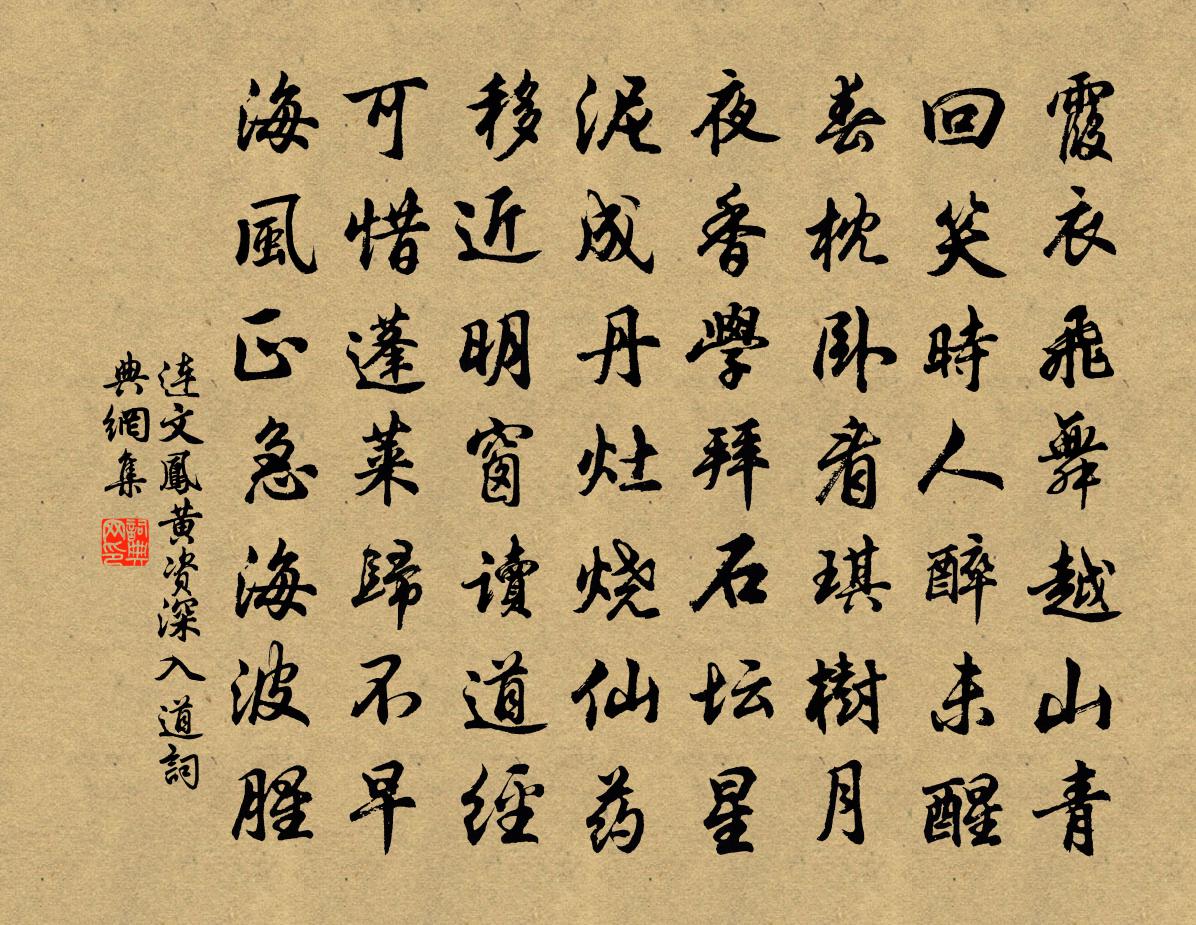 霞衣飛舞越山青
回笑時人醉未醒
春枕卧看琪樹月
夜香學拜石坛星
泥成丹灶烧仙药
移近明窗讀道經
可惜蓬萊歸不早
海風正急海波腥
連文鳳黄资深入道詞
典網集
詞典
网印